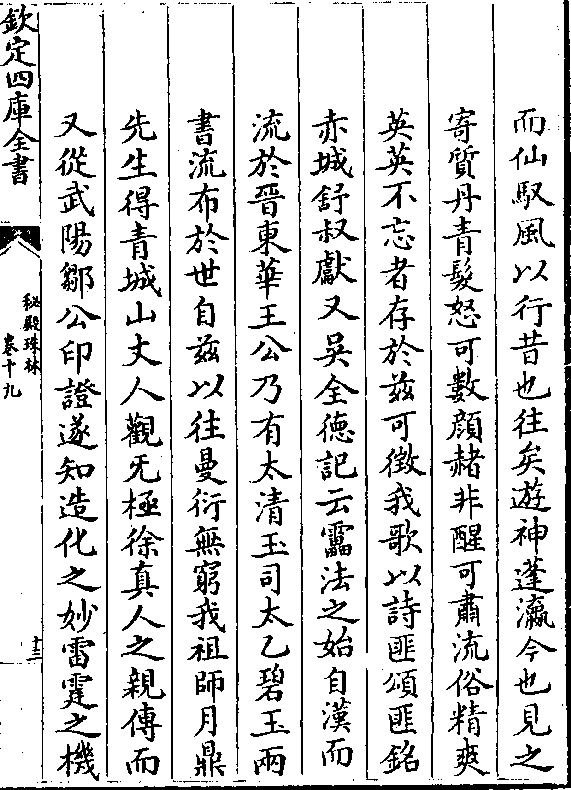 而仙馭風以行昔也往矣遊神蓬瀛今也見之
寄質丹青髮怒可數顔赭非醒可肅流俗精爽
英英不忘者存於兹可徴我歌以詩匪頌匪銘
赤城舒叔獻又吳全德記云靁法之始自漢而
流於晉東華王公乃有太清玉司太乙碧玉兩
書流布於世自兹以往曼衍無窮我祖師月鼎
先生得青城山丈人觀旡極徐真人之親傳而
又從武陽鄒公印證遂知造化之妙雷霆之機
欽定四庫全書
秘殿珠林
卷十九
十三